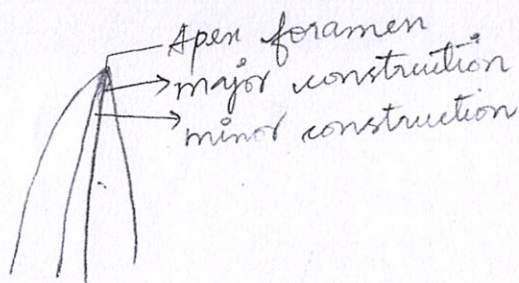 Apex foramen
major construction
minor construction